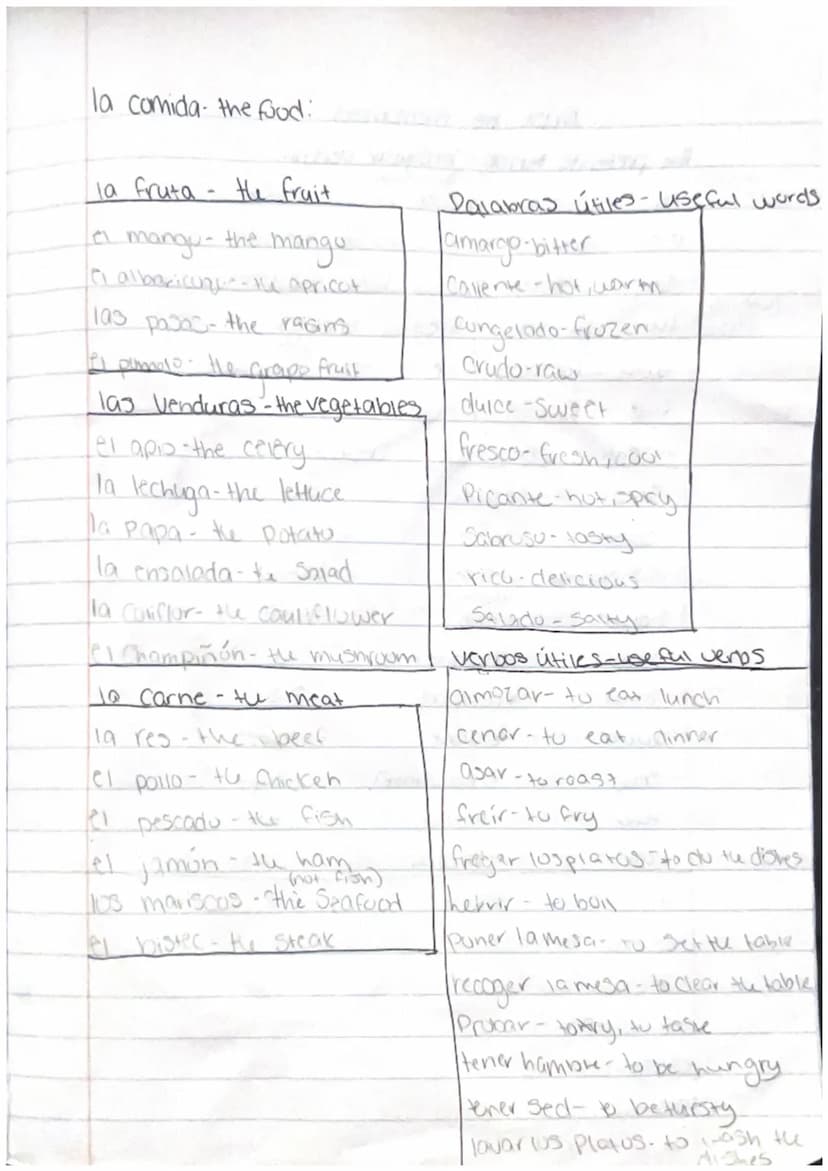 la comida- the food:
la fruta - the fruit
el mango- the mango
el albaricoque - the apricot
las pasas- the rasins
el pomelo- the grape fruit
las Venduras - the vegetables
el apio - the celery
la lechuga- the lettuce
la papa - the potato
la ensalada- the Salad
la Coliflor- the cauliflower
el Champiñón- the mushroom
la carne - the meat
la res - the beef
el pollo - the Chicken
el pescado - the fish
el jamón - the ham
(not fish)
los mariscos - the Seafood
el bistec - the steak
Palabras útiles - useful words
amargo-bitter
Caliente - hot, warm
congelado- frozen
Crudo-raw
dulce - Sweet
fresco- fresh, cool
Picante - hot, spicy
Sabroso - tasty
rico- delicious
Salado - Salty
verbos útiles - useful verbs
almozar- to eat lunch
cenar - to eat dinner
asar - to roast
freír- to fry
fregar los platos - to do the dishes
hervir - to boil
poner la mesa- to set the table
recoger la mesa - to Clear the table
Probar - to try, to taste
tener hambre - to be hungry
tener sed- to be thirsty
lavar los platos- to wash the
dishes